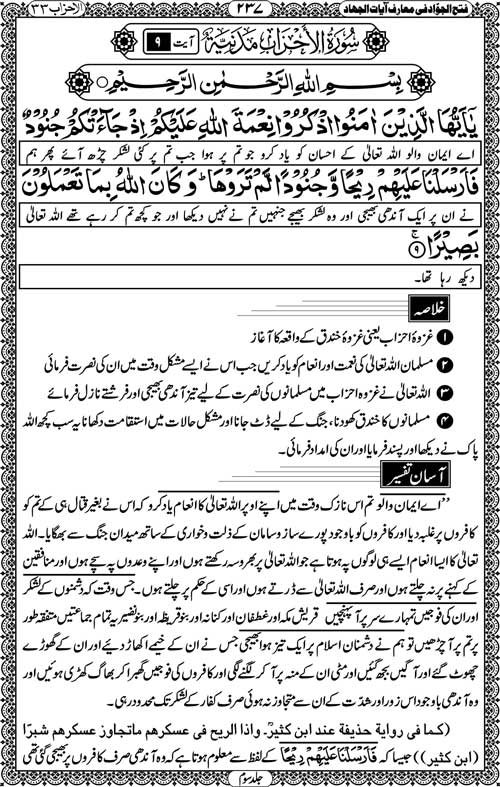 فتح الجوّاد فی معارف آیات الجهاد ۲۳۷ الاحزاب ۳۳
سُوْرَةُ الْاَحْزَابِ مَدَنِيَّةٌ آیت ۹
بِسْمِ اللهِ الرَّحْمٰنِ الرَّحِيْمِ
يٰۤاَيُّهَا الَّذِيْنَ اٰمَنُوا اذْكُرُوْا نِعْمَةَ اللهِ عَلَيْكُمْ اِذْ جَآءَتْكُمْ جُنُوْدٌ
اے ایمان والو اللہ تعالیٰ کے احسان کو یاد کرو جو تم پر ہوا جب تم پر کئی لشکر چڑھ آئے پھر ہم
فَاَرْسَلْنَا عَلَيْهِمْ رِيْحًا وَّجُنُوْدًا لَّمْ تَرَوْهَا ؕ وَكَانَ اللهُ بِمَا تَعْمَلُوْنَ
نے ان پر ایک آندھی بھیجی اور وہ لشکر بھیجے جنہیں تم نے نہیں دیکھا اور جو کچھ تم کر رہے تھے اللہ تعالیٰ
بَصِيْرًا ۹
دیکھ رہا تھا۔
خلاصہ
۱ غزوۂ احزاب یعنی غزوۂ خندق کے واقعہ کا آغاز
۲ مسلمان اللہ تعالیٰ کی نعمت اور انعام کو یاد کریں جب اس نے ایسے مشکل وقت میں ان کی نصرت فرمائی
۳ اللہ تعالیٰ نے غزوہ احزاب میں مسلمانوں کی نصرت کے لیے تیز آندھی بھیجی اور فرشتے نازل فرمائے
۴ مسلمانوں کا خندق کھودنا، جنگ کے لیے ڈٹ جانا اور مشکل حالات میں استقامت دکھانا یہ سب کچھ اللہ
پاک نے دیکھا اور پسند فرمایا اور ان کی امداد فرمائی۔
آسان تفسیر
”اے ایمان والو تم اس نازک وقت میں اپنے اوپر اللہ تعالیٰ کا انعام یاد کرو کہ اس نے بغیر قتال ہی کے تم کو
کافروں پر غلبہ دیا اور کافروں کو باوجود پورے ساز و سامان کے ذلت و خواری کے ساتھ میدان جنگ سے بھگایا۔ اللہ
تعالیٰ کا ایسا انعام ایسے ہی لوگوں پہ ہوتا ہے جو اللہ تعالیٰ پر بھروسہ رکھتے ہوں اور اپنے وعدوں پہ سچے ہوں اور منافقین
کے کہنے پر نہ چلتے ہوں اور صرف اللہ تعالیٰ سے ڈرتے ہوں اور اسی کے حکم پر چلتے ہوں۔ جس وقت کہ دشمنوں کے لشکر
اور ان کی فوجیں تمہارے سر پر آپہنچیں قریش مکہ اور غطفان اور کنانہ اور بنو قریظہ اور بنو نضیر یہ تمام جماعتیں متفقہ طور
پر تم پر آچڑھیں تو ہم نے دشمنان اسلام پر ایک تیز ہوا بھیجی جس نے ان کے خیمے اکھاڑ دیئے اور ان کے گھوڑے
چھوٹ گئے اور آگیں بجھ گئیں اور مٹی ان کے منہ پر آکر لگنے لگی اور کافروں کی فوجیں گھبرا کر بھاگ کھڑی ہوئیں اور
وہ آندھی باوجود اس زور اور شدّت کے ان سے متجاوز نہ ہوئی صرف کفار کے لشکر تک محدود رہی۔
(کما فی روایة حذیفة عند ابن کثیرؒ۔ واذا الریح فی عسکرهم ماتجاوز عسکرهم شبرًا
(ابن کثیر)) جیسا کہ فَاَرْسَلْنَا عَلَيْهِمْ رِيْحًا کے لفظ سے معلوم ہوتا ہے کہ وہ آندھی صرف کافروں پر بھیجی گئی تھی
جلد سوم